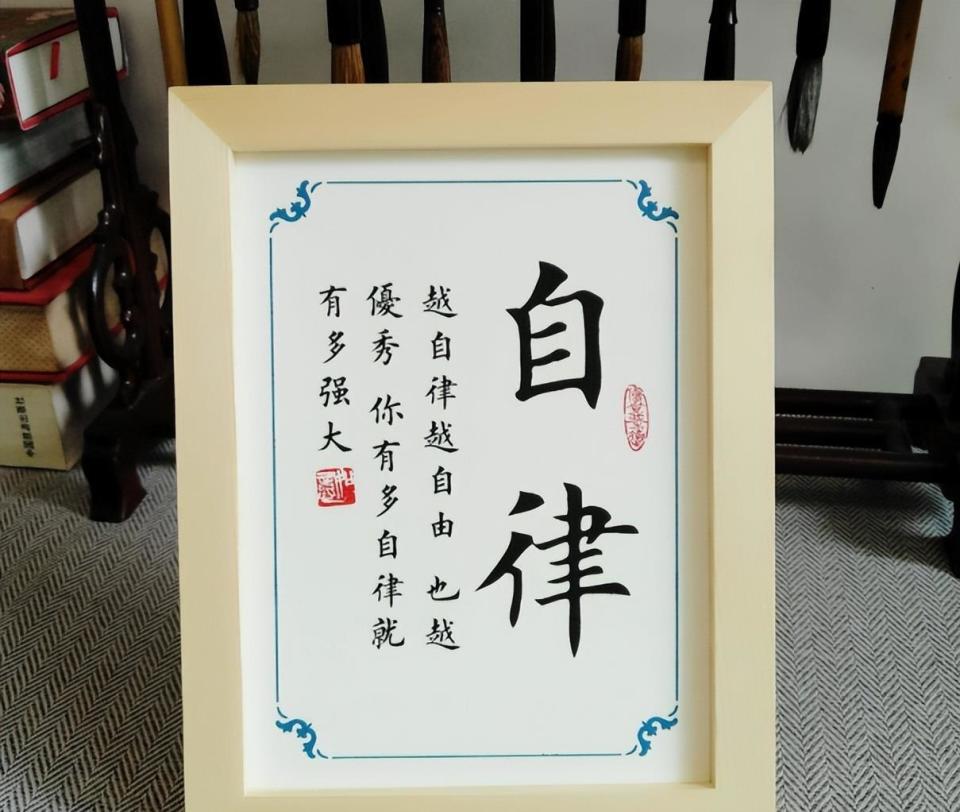 自律
越自律越自由 也越
優秀 你有多自律就
有多强大